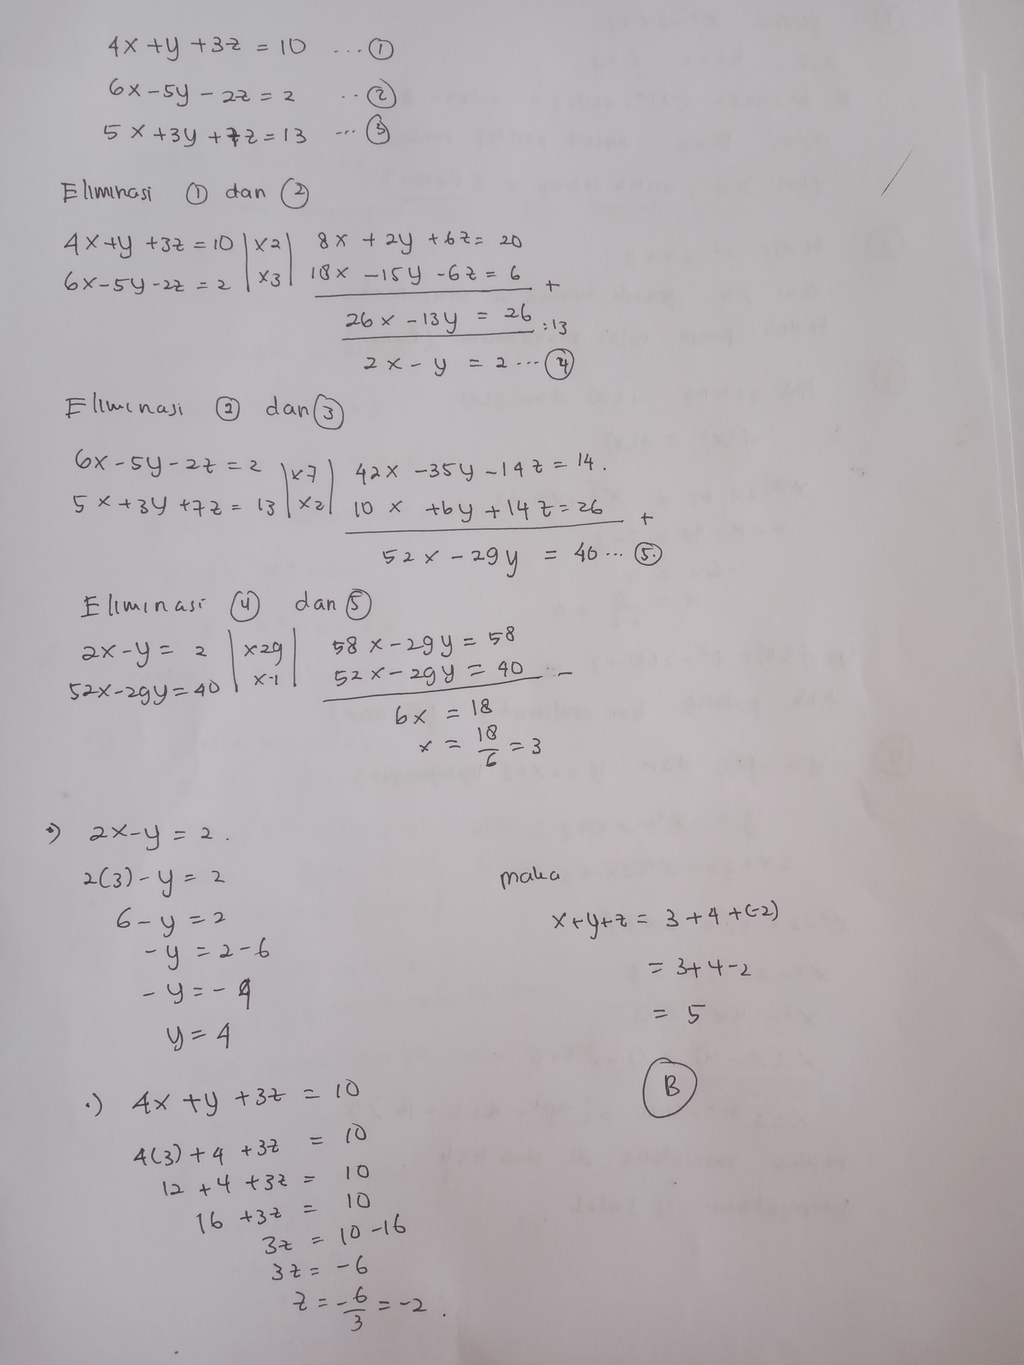 4x + y + 3z = 10 ... ①
6x - 5y - 2z = 2 .. ②
5x + 3y + 7z = 13 ... ③
Eliminasi ① dan ②
4x + y + 3z = 10 | x2 | 8x + 2y + 6z = 20
6x - 5y - 2z = 2 | x3 | 18x - 15y - 6z = 6 +
26x - 13y = 26 :13
2x - y = 2 ... ④
Eliminasi ② dan ③
6x - 5y - 2z = 2 | x7 | 42x - 35y - 14z = 14.
5x + 3y + 7z = 13 | x2 | 10x + 6y + 14z = 26 +
52x - 29y = 40 ... ⑤
Eliminasi ④ dan ⑤
2x - y = 2 | x29 | 58x - 29y = 58
52x - 29y = 40 | x1 | 52x - 29y = 40 -
6x = 18
x = 18/6 = 3
•) 2x - y = 2.
2(3) - y = 2
6 - y = 2
-y = 2 - 6
-y = -4
y = 4
•) 4x + y + 3z = 10
4(3) + 4 + 3z = 10
12 + 4 + 3z = 10
16 + 3z = 10
3z = 10 - 16
3z = -6
z = -6/3 = -2.
maka
x + y + z = 3 + 4 + (-2)
= 3 + 4 - 2
= 5
B